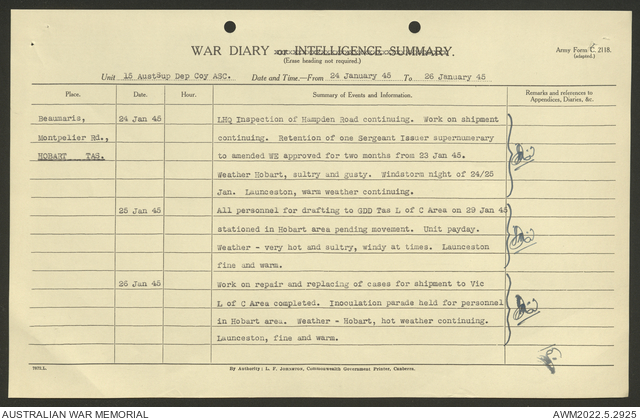 WAR DIARY OF INTELLIGENCE SUMMARY.
(Erase heading not required.)
Army Form C. 2118.
(adapted.)
Unit 15 AustSup Dep Coy ASC. Date and Time.—From 24 January 45 To 26 January 45
Place. Date. Hour. Summary of Events and Information. Remarks and references to Appendices, Diaries, &c.
Beaumaris, 24 Jan 45 LHQ Inspection of Hampden Road continuing. Work on shipment
Montpelier Rd., continuing. Retention of one Sergeant Issuer supernumerary
HOBART TAS. to amended WE approved for two months from 23 Jan 45.
Weather Hobart, sultry and gusty. Windstorm night of 24/25
Jan. Launceston, warm weather continuing.
25 Jan 45 All personnel for drafting to GDD Tas L of C Area on 29 Jan 45
stationed in Hobart area pending movement. Unit payday.
Weather - very hot and sultry, windy at times. Launceston
fine and warm.
26 Jan 45 Work on repair and replacing of cases for shipment to Vic
L of C Area completed. Inoculation parade held for personnel
in Hobart area. Weather - Hobart, hot weather continuing.
Launceston, fine and warm.
By Authority: L. F. Johnston, Commonwealth Government Printer, Canberra.
AUSTRALIAN WAR MEMORIAL AWM2022.5.2925